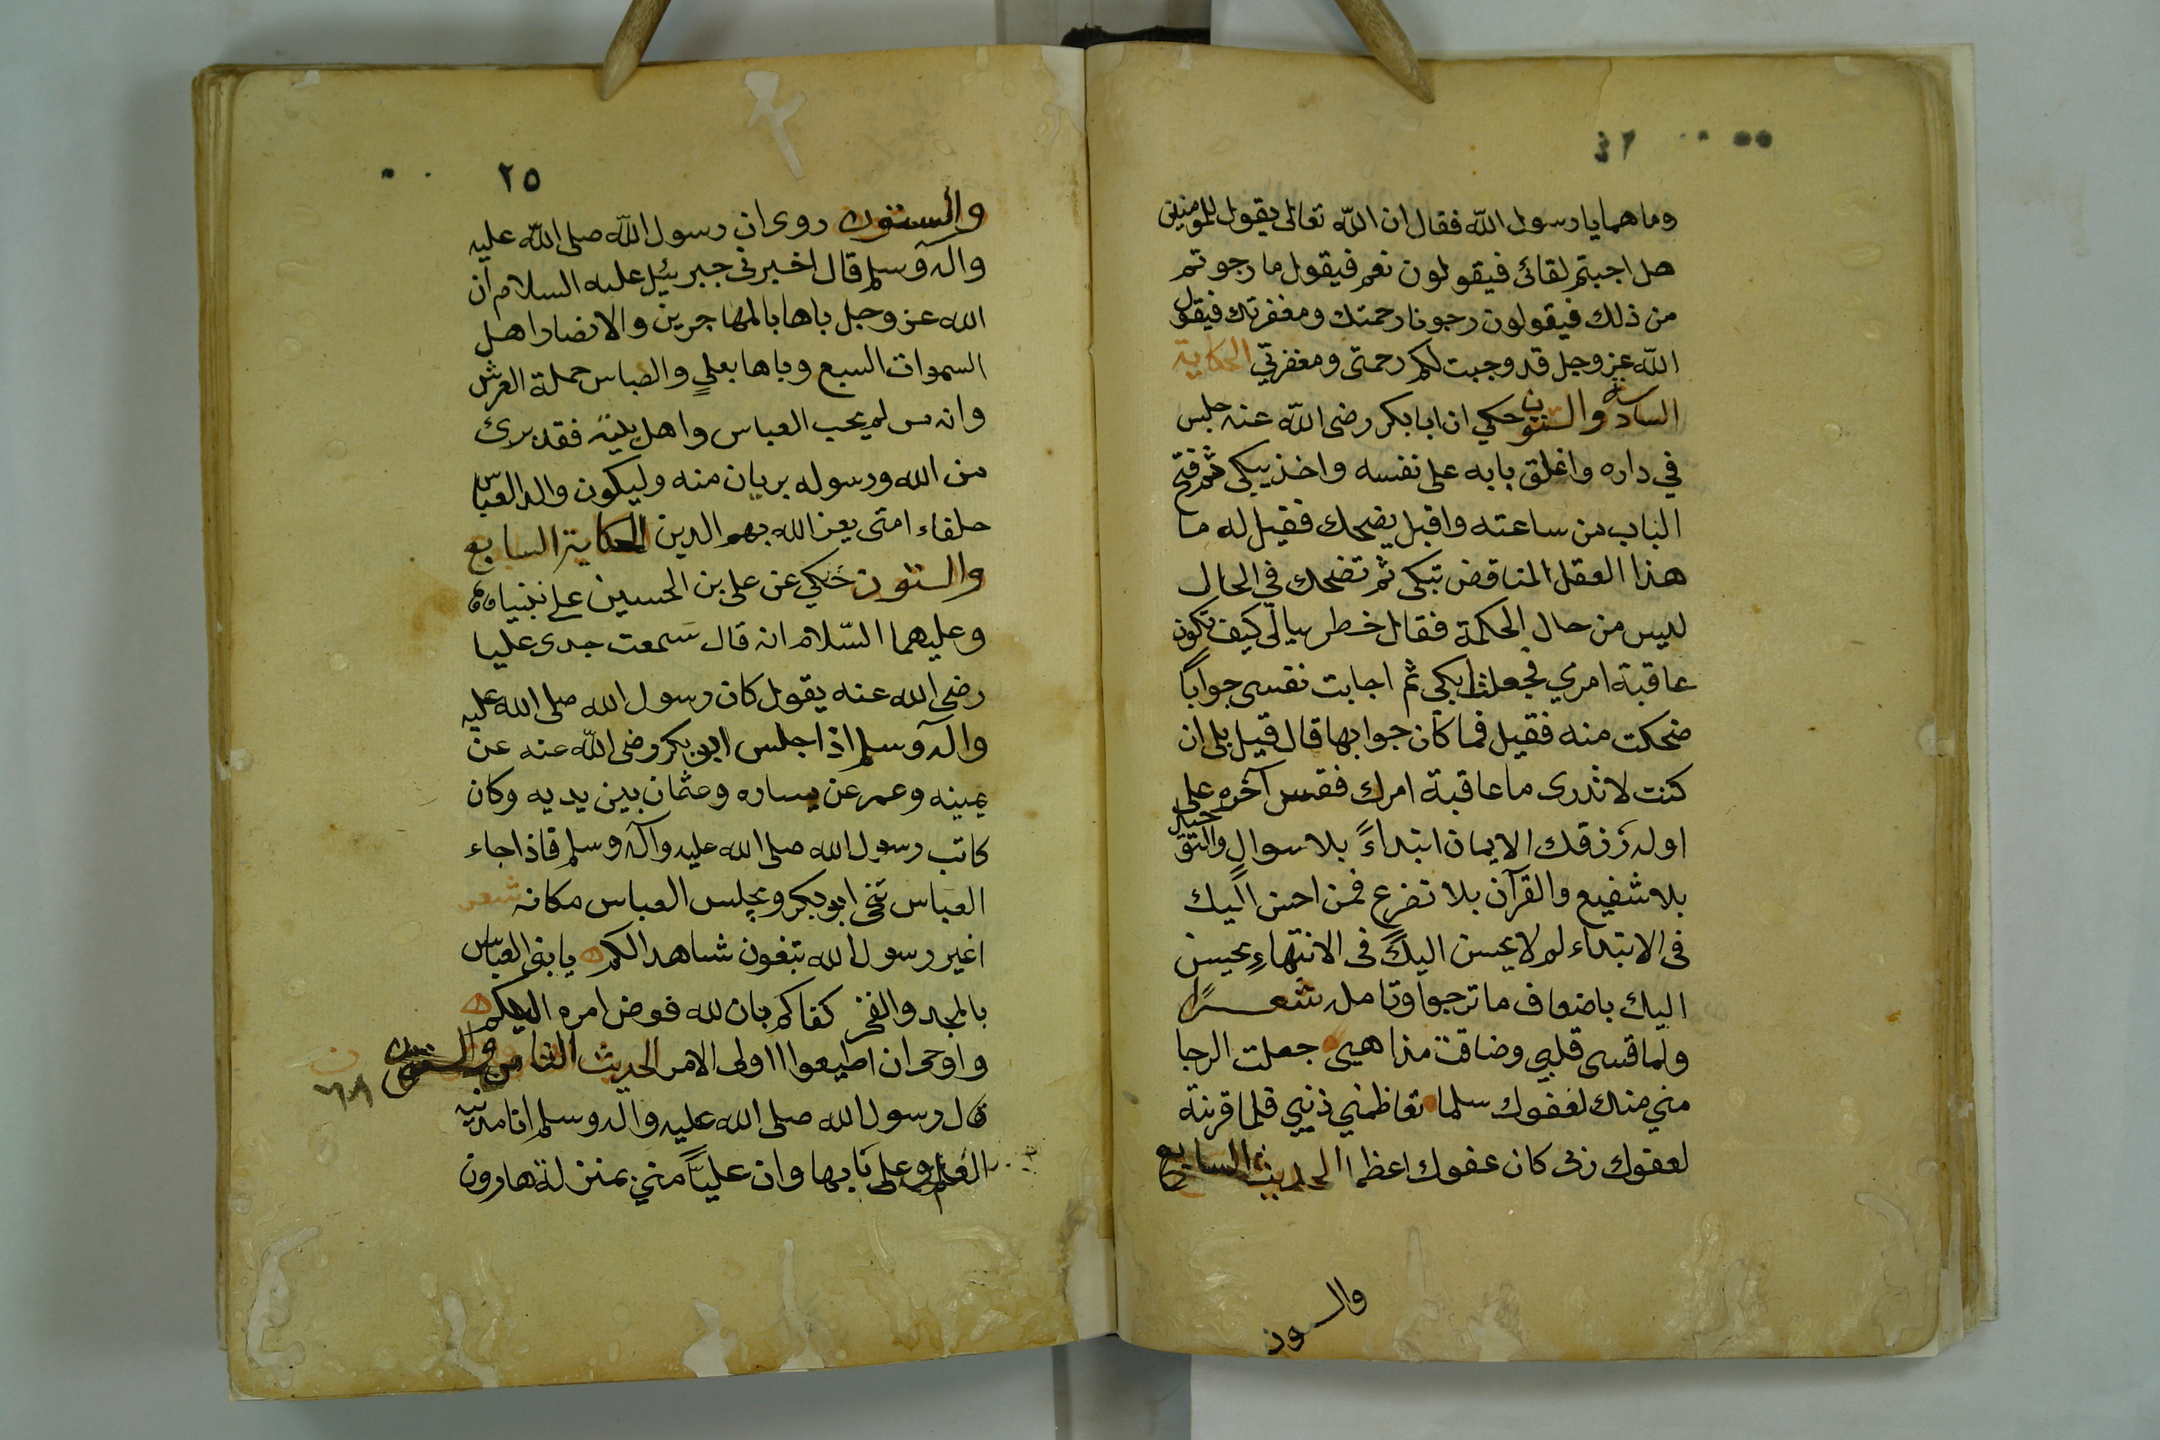 وما هما يا رسول الله فقال ان الله تعالى يقول للمومنين
هل اجبتم لقائى فيقولون نعم فيقول ما رجوتم
من ذلك فيقولون رجونا رحمتك ومغفرتك فيقول
الله عز وجل قد وجبت لكم رحمتى ومغفرتي الحكاية
السادسة والستون حكي ان ابا بكر رضى الله عنه جلس
في داره واغلق بابه على نفسه واخذ يبكى ثم فتح
الباب من ساعته واقبل يضحك فقيل له ما
هذا العقل المناقض تبكى ثم تضحك في الحال
ليس من حال الحكمة فقال خطر ببالى كيف تكون
عاقبة امري فجعلت ابكي ثم اجابت نفسى جواباً
ضحكت منه فقيل فما كان جوابها قال قيل بلى ان
كنت لا تدرى ما عاقبة امرك فقس آخره على
اوله رزقك الايمان ابتداءً بلا سوال والتوحيد
بلا شفيع والقرآن بلا تضرع فمن احسن اليك
فى الابتداء لم لا يحسن اليك فى الانتهاء يحسن
اليك باضعاف ما ترجوا وتامل شعرًا
ولما قسى قلبي وضاقت مذاهبى جعلت الرجا
مني منك لعفوك سلما تعاظمني ذنبي فلما قرنته
لعفوك ربى كان عفوك اعظما الحديث السابع
والستون
٢٥
والستون روى ان رسول الله صلى الله عليه
وآله وسلم قال اخبرنى جبرئيل عليه السلام أن
الله عز وجل باها بالمهاجرين والانصار اهل
السموات السبع وباها بعلي والعباس حملة العرش
وانه من لم يحب العباس واهل بيته فقد برئ
من الله ورسوله بريان منه وليكون والد العباس
خلفاء امتى يعز الله بهم الدين الحكاية السابع
والستون حكي عن على بن الحسين على نبينا
وعليهما السّلام انه قال سَمعت جدى عليا
رضى الله عنه يقول كان رسول الله صلى الله عليه
وآله وسلم اذا جلس ابو بكر رضى الله عنه عن
يمينه وعمر عن يساره وعثمان بين يديه وكان
كاتب رسول الله صلى الله عليه وآله وسلم فاذا جاء
العباس تنحى ابو بكر ويجلس العباس مكانه شعر
اغير رسول الله تبغون شاهدا لكم يا بنى العباس
بالمجد والفخر كفاكم بان الله فوض امره اليكم
واوحى ان اطيعوا اولى الامر الحديث الثامن والستون
٦٨
قال رسول الله صلى الله عليه واله وسلم انا مدينة
العلم وعلى بابها وان علياً مني بمنزلة هارون